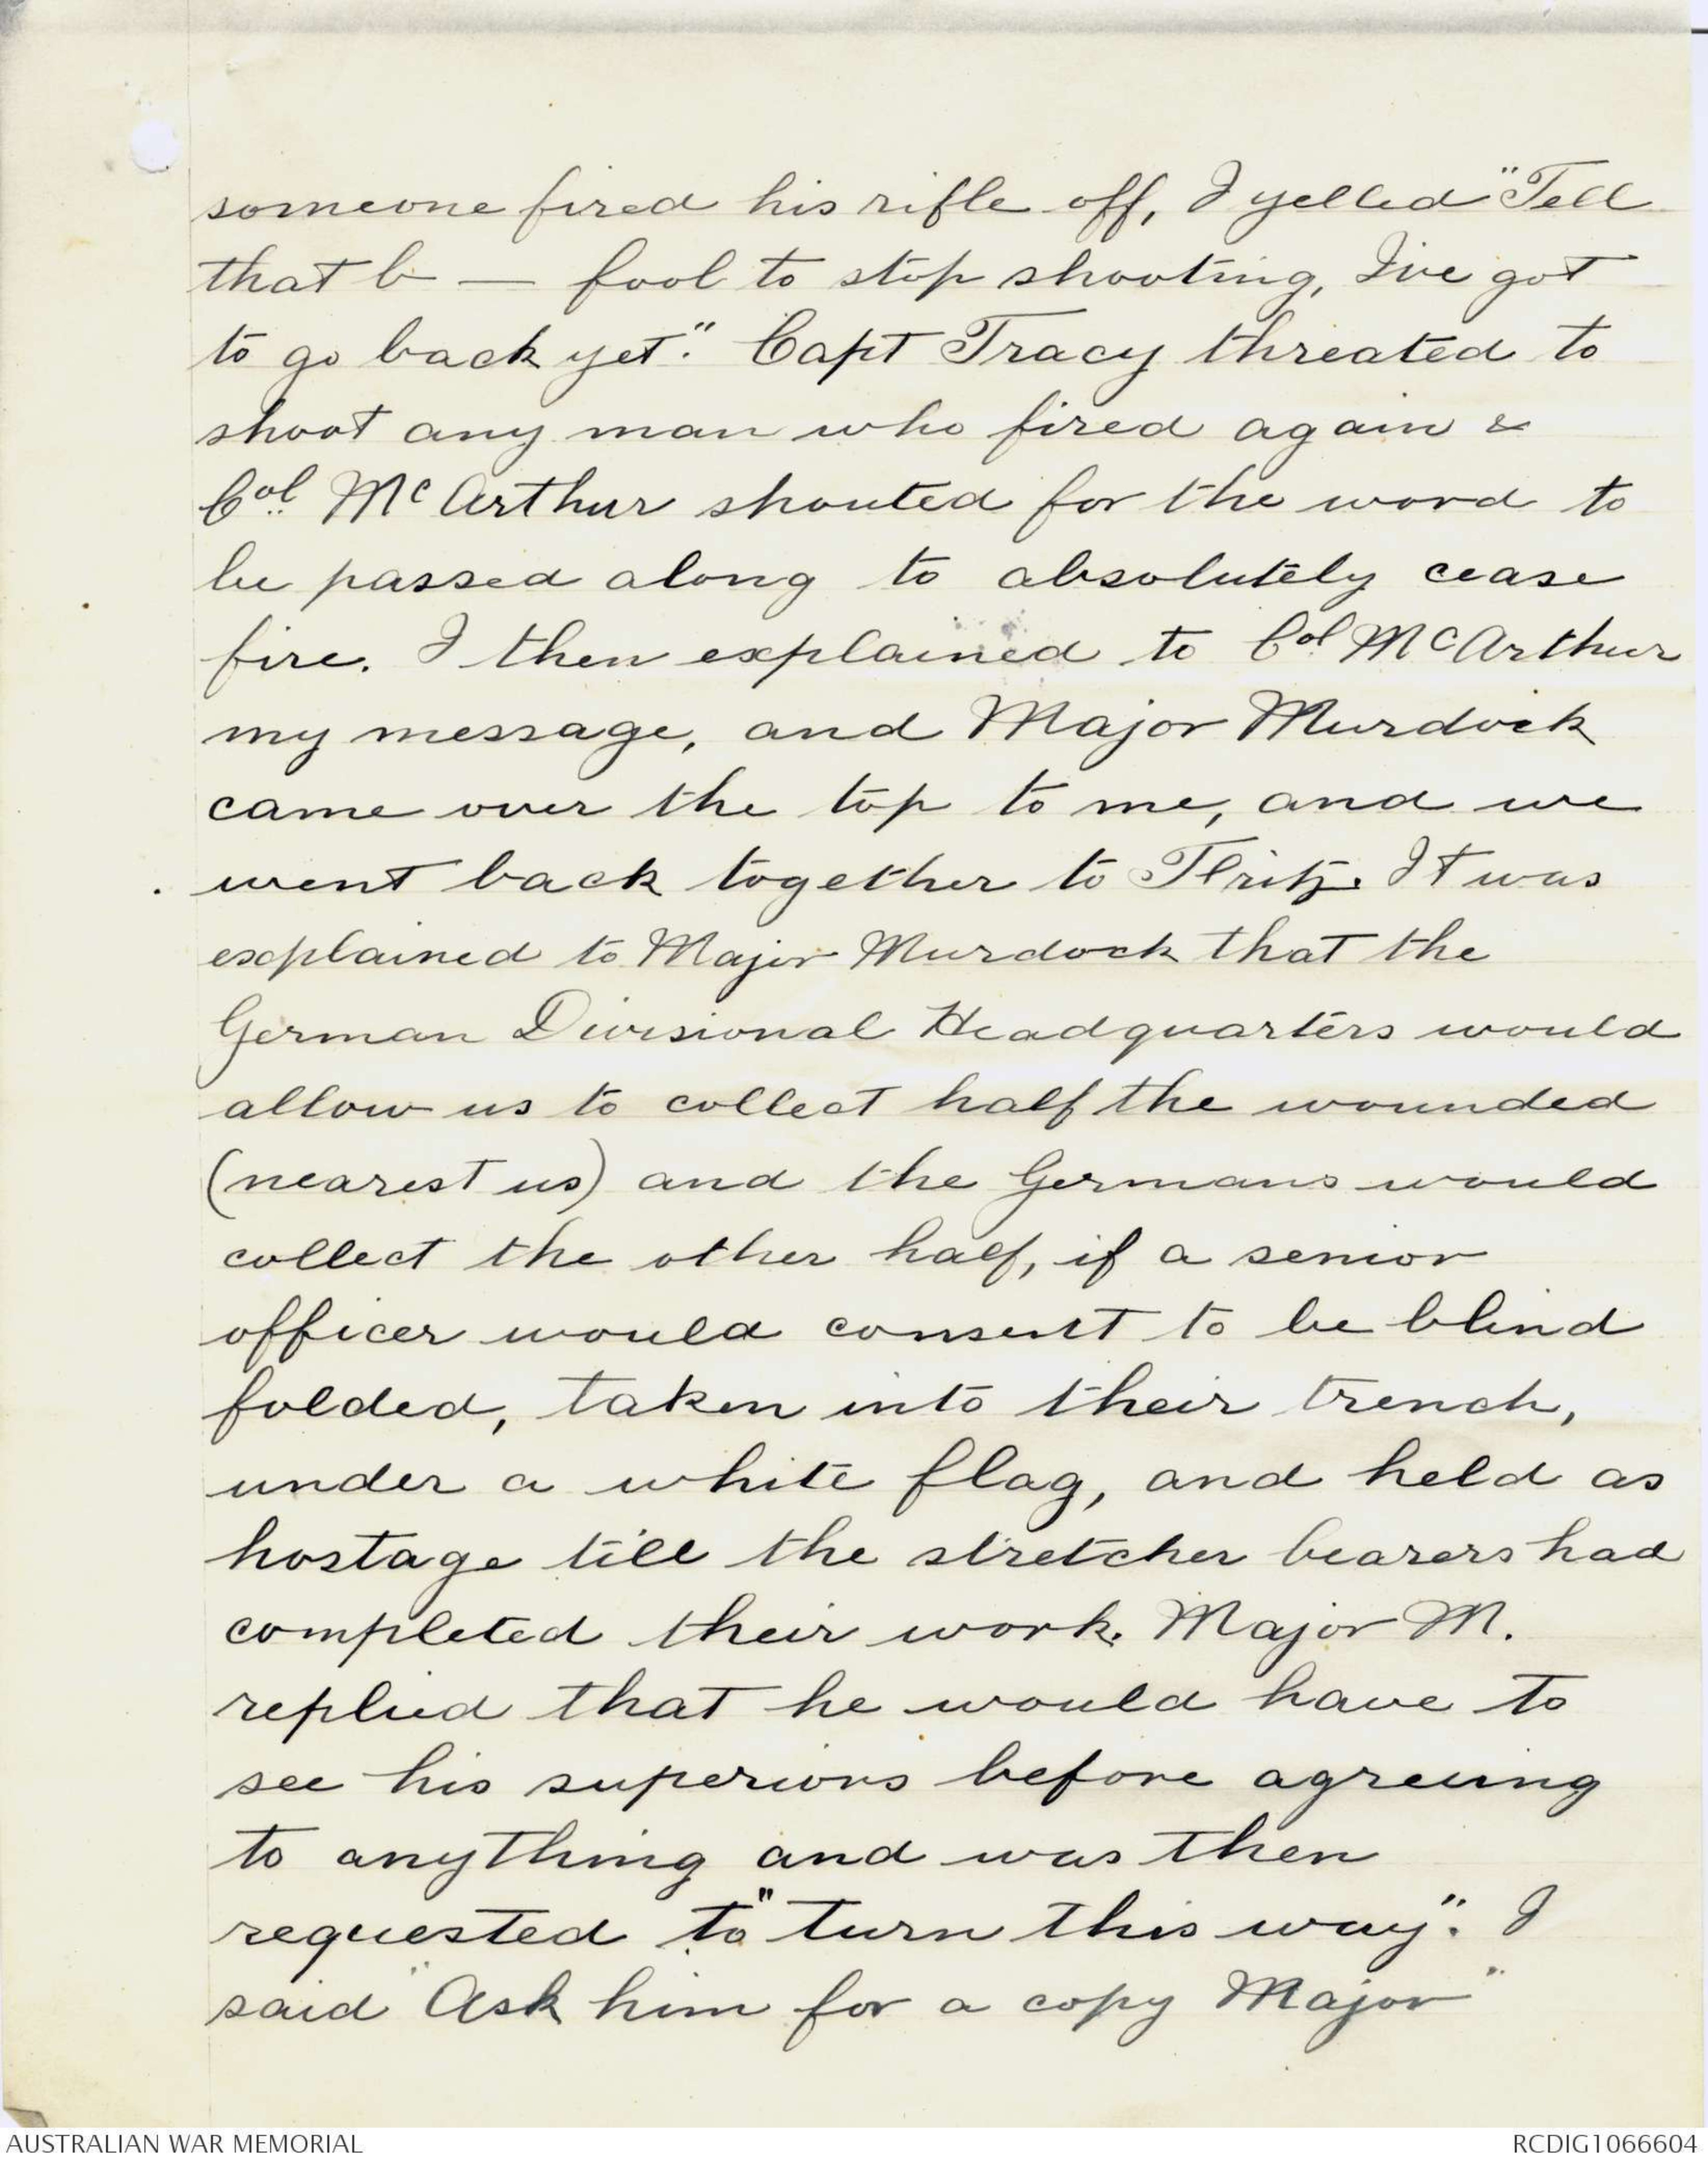 someone fired his rifle off, I yelled "Tell
that b — fool to stop shooting, I've got
to go back yet." Capt Tracy threated to
shoot any man who fired again &
Col. McArthur shouted for the word to
be passed along to absolutely cease
fire. I then explained to Col McArthur
my message, and Major Murdock
came over the top to me, and we
went back together to Fritz. It was
explained to Major Murdock that the
German Divisional Headquarters would
allow us to collect half the wounded
(nearest us) and the Germans would
collect the other half, if a senior
officer would consent to be blind
folded, taken into their trench,
under a white flag, and held as
hostage till the stretcher bearers had
completed their work. Major M.
replied that he would have to
see his superiors before agreeing
to anything and was then
requested to "turn this way". I
said "Ask him for a copy Major"
AUSTRALIAN WAR MEMORIAL
RCDIG1066604